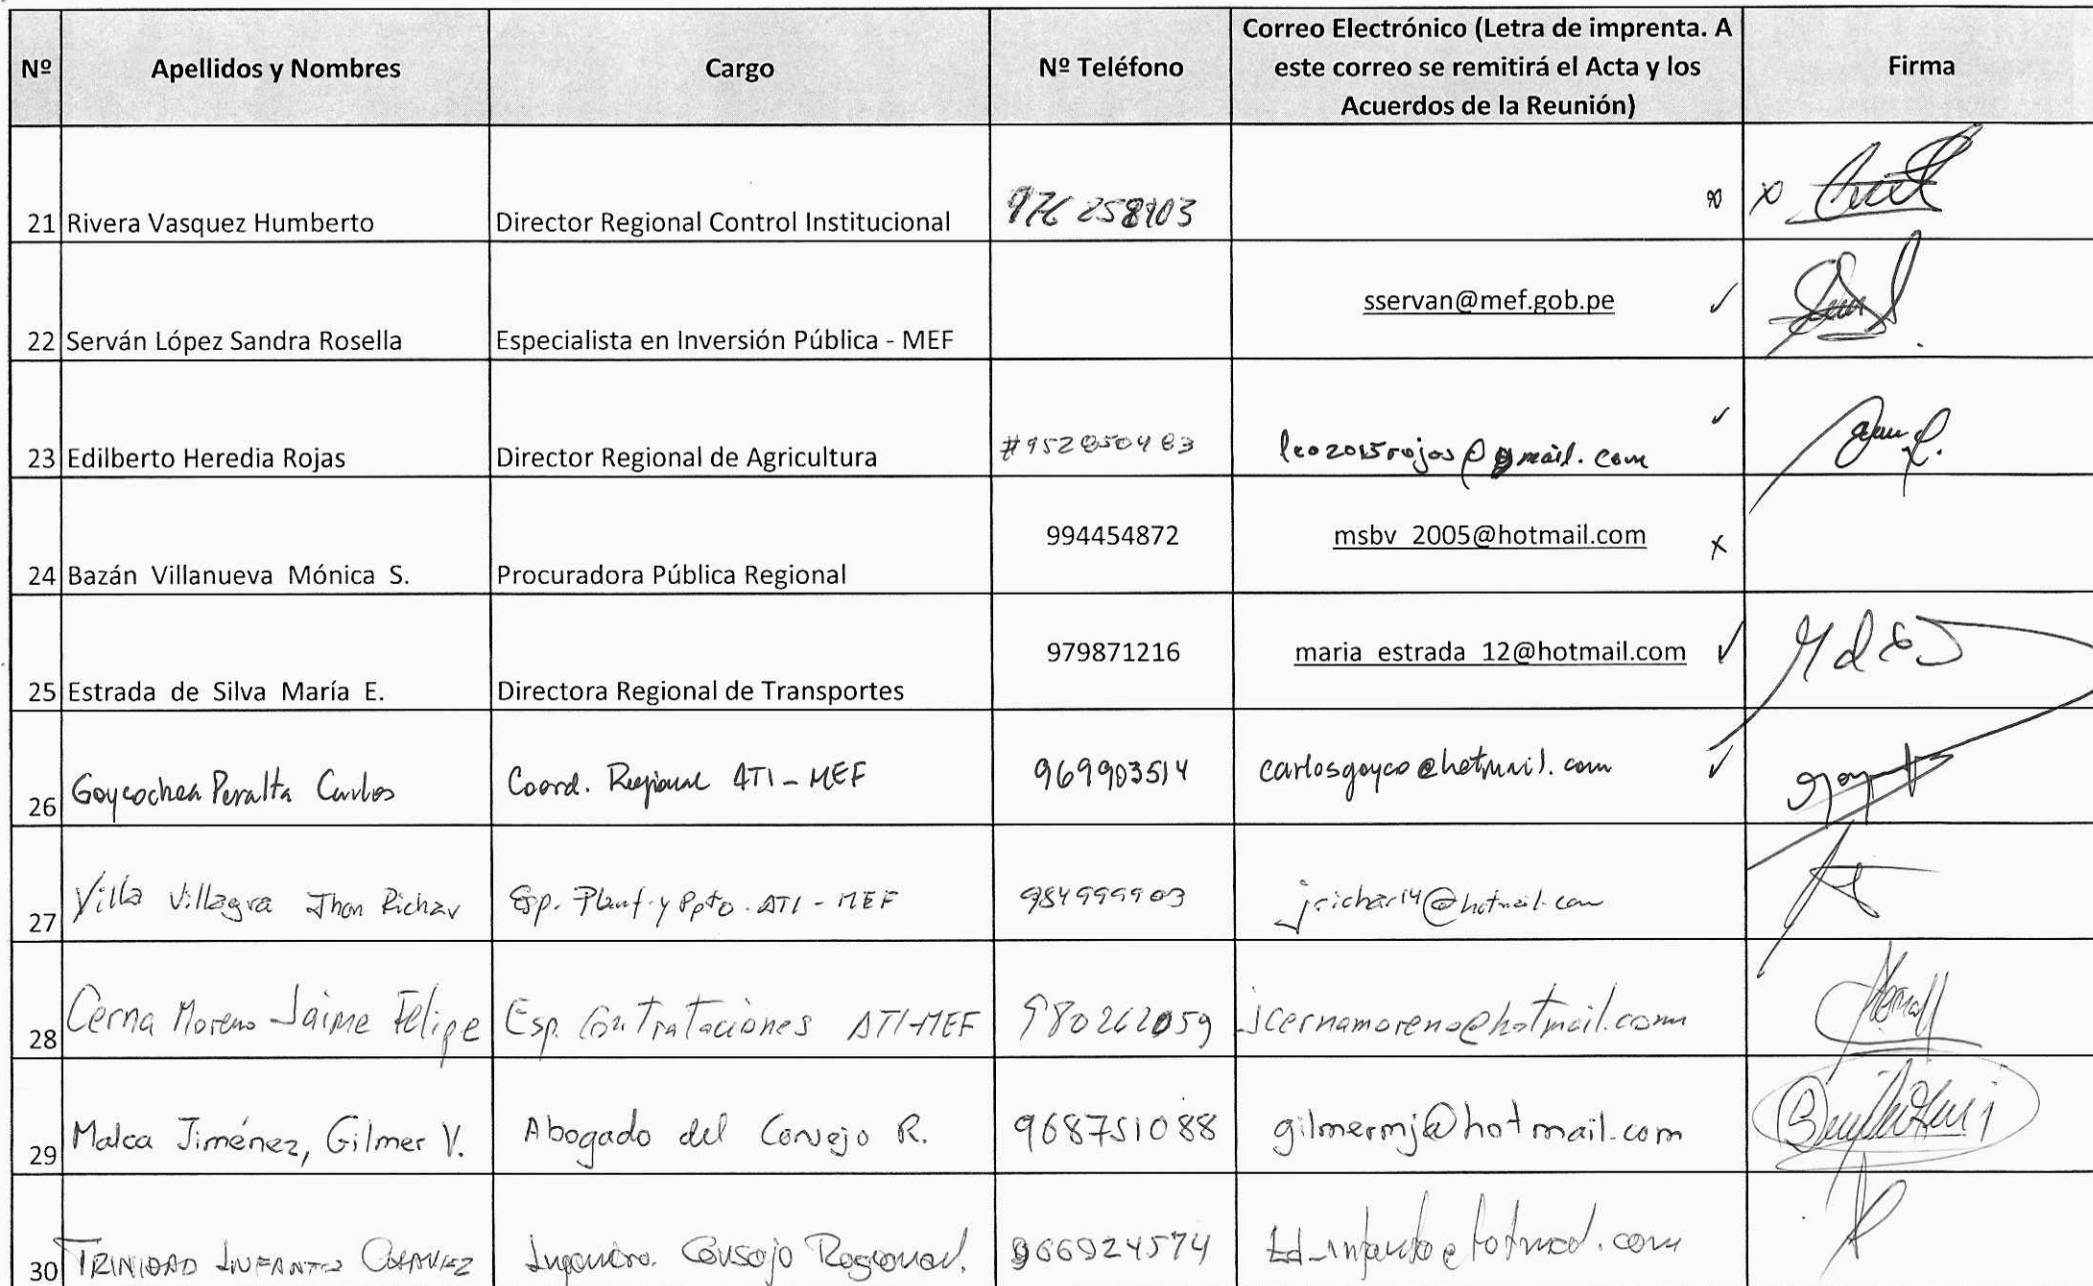 Nº Apellidos y Nombres Cargo Nº Teléfono Correo Electrónico (Letra de imprenta. A este correo se remitirá el Acta y los Acuerdos de la Reunión) Firma
21 Rivera Vasquez Humberto Director Regional Control Institucional
22 Serván López Sandra Rosella Especialista en Inversión Pública - MEF sservan@mef.gob.pe
23 Edilberto Heredia Rojas Director Regional de Agricultura leo2015rojas@gmail.com
24 Bazán Villanueva Mónica S. Procuradora Pública Regional 994454872 msbv_2005@hotmail.com
25 Estrada de Silva María E. Directora Regional de Transportes 979871216 maria_estrada_12@hotmail.com
26 Goycochea Peralta Carlos Coord. Regional ATI - MEF 969903514 carlosgoyco@hotmail.com
27 Villa Villagra Jhon Richar Esp. Planf. y Ppto. ATI - MEF 984999903 jrichar14@hotmail.com
28 Cerna Moreno Jaime Felipe Esp. Contrataciones ATI-MEF 980262059 jcernamoreno@hotmail.com
29 Malca Jiménez, Gilmer V. Abogado del Consejo R. 968751088 gilmermj@hotmail.com
30 TRINIDAD INFANTE CHAVEZ Consejo Regional. 966924574